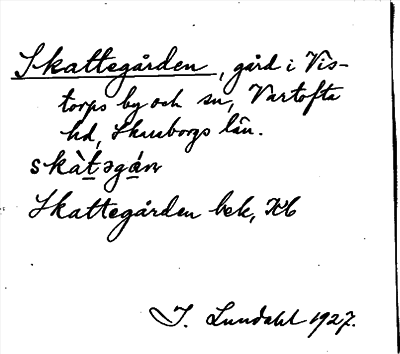 Skattegården, gård i Vis-
torps by och sn, Vartofta
hd, Skaraborgs län.
skàt̠əgán
Skattegården bek, Kb
I. Lundahl 1927.